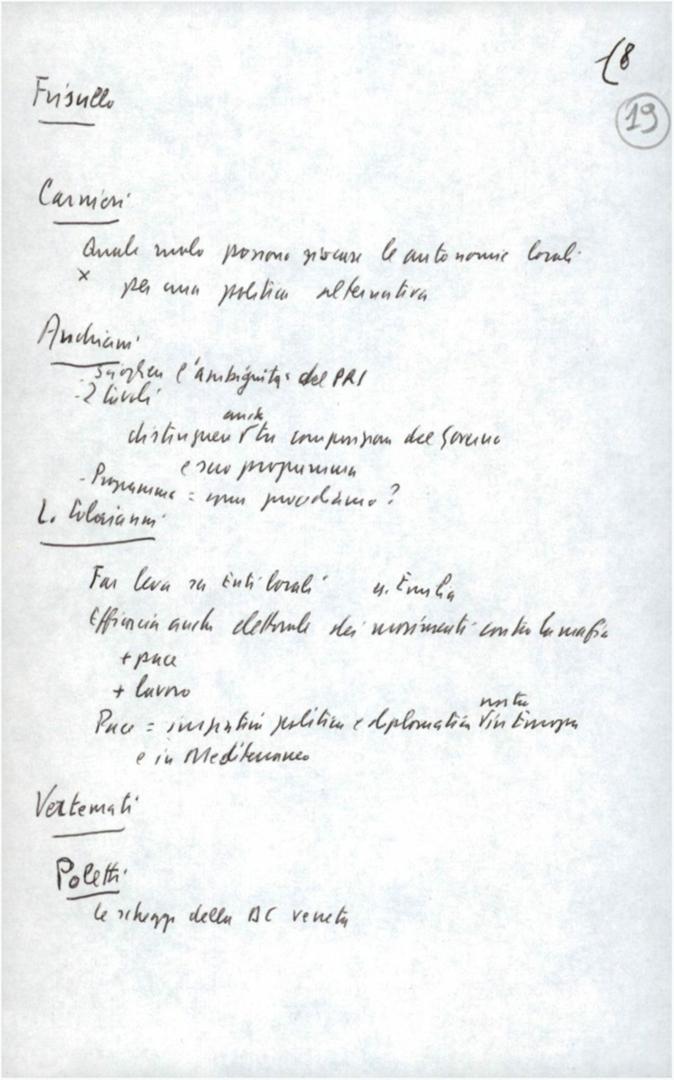 18
19
Frisullo
Carnieri
Quale ruolo possono giocare le autonomie locali
x per una politica alternativa
Andriani
- Sciogliere l'ambiguità del PRI
- 2 livelli
anche
distinguere tra composizione del Governo
e suo programma
- Programma = come procediamo?
L. Colajanni
Far leva su Enti locali Emilia
Efficacia anche elettorale dei movimenti contro la mafia
+ pace
+ lavoro
Pace = iniziativa politica e diplomatica nostra in Europa
e in Mediterraneo
Vertemati
Poletti
le schegge della DC veneta